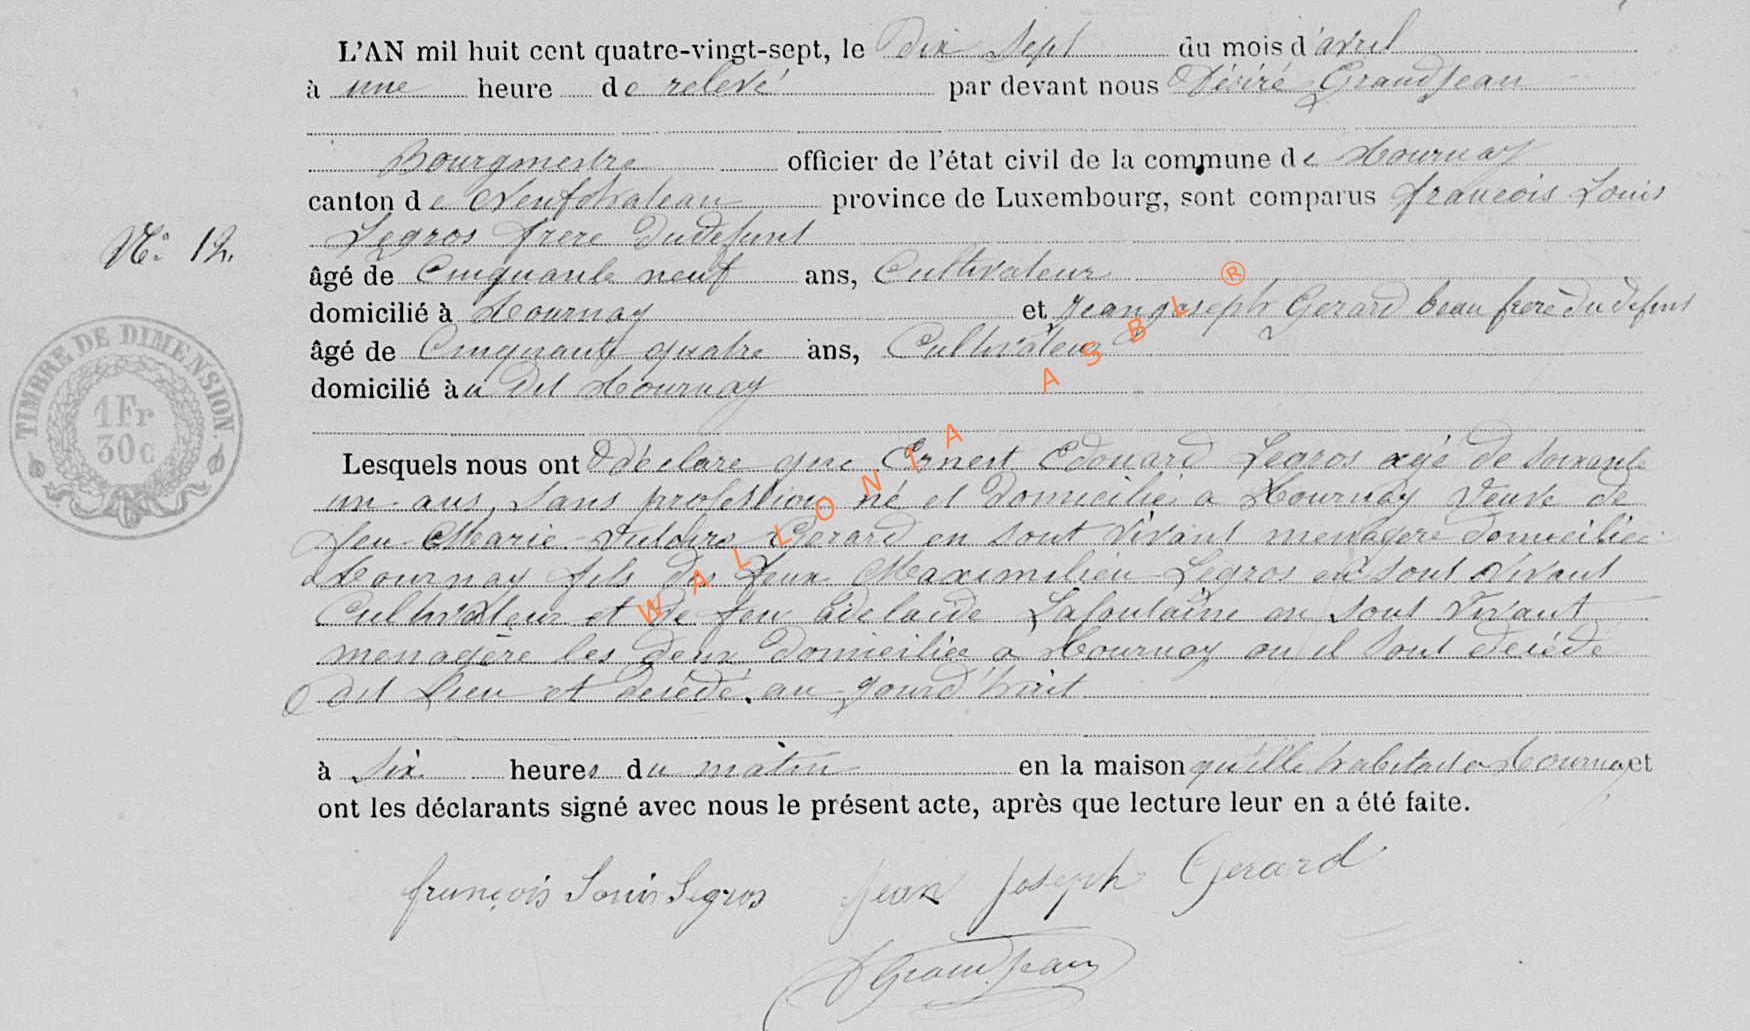 L'AN mil huit cent quatre-vingt-sept, le Dix Sept du mois d'avril
à une heure de relevé par devant nous Désiré Grandjean
Bourgmestre officier de l'état civil de la commune de Tournay
canton de Neufchateau province de Luxembourg, sont comparus francois Louis
Legros frere du defunt
N° 12.
âgé de Cinquante neuf ans, Cultivateur
domicilié à Tournay et Jean joseph Gerard beau frere du defunt
âgé de Cinquante quatre ans, Cultivateur
domicilié àu dit Tournay
TIMBRE DE DIMENSION.
1Fr
30c
Lesquels nous ont déclare que Ernest Edouard Legros agé de soixante
un ans, sans profession né et domicilié a Tournay veuve de
feu Marie Gerard en sont vivant menagere domiciliée
a Tournay fils des feux Maximilien Legros en sont vivant
Cultivateur et de feu adelaide Lafontaine en sont vivant
menagère les deux domiciliée a Tournay ou il sont décédé
dit lieu et décédé au jourd'huit
à six heures du matin en la maison qu'elle habitait a Tournay et
ont les déclarants signé avec nous le présent acte, après que lecture leur en a été faite.
françois Louis Legros Jean Joseph Gerard
D Grandjean
WALLONIA ASBL ®